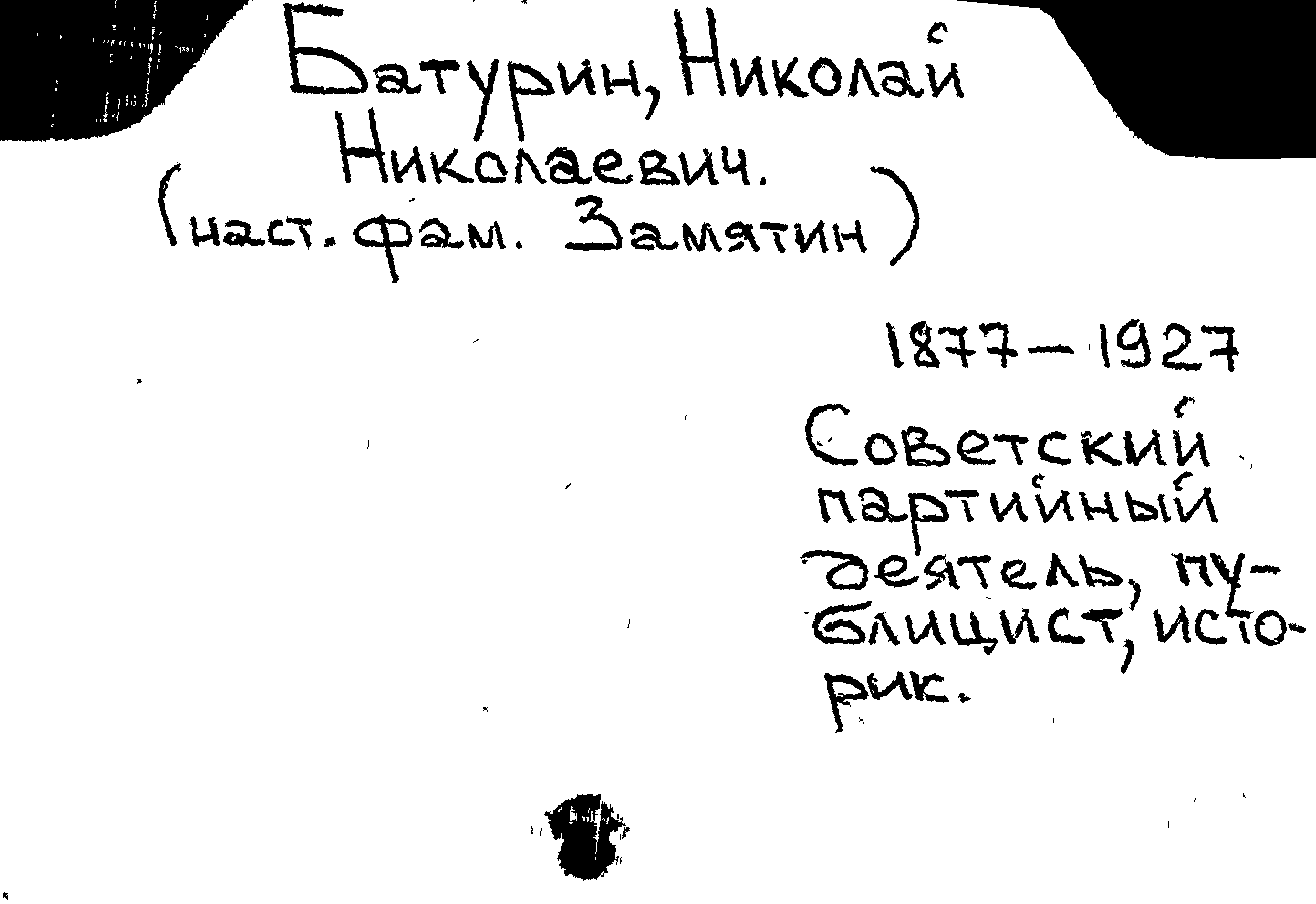 Батурин, Николай
Николаевич.
(наст. фам. Замятин)
1877—1927
Советский
партийный
деятель, пу-
блицист, исто-
рик.